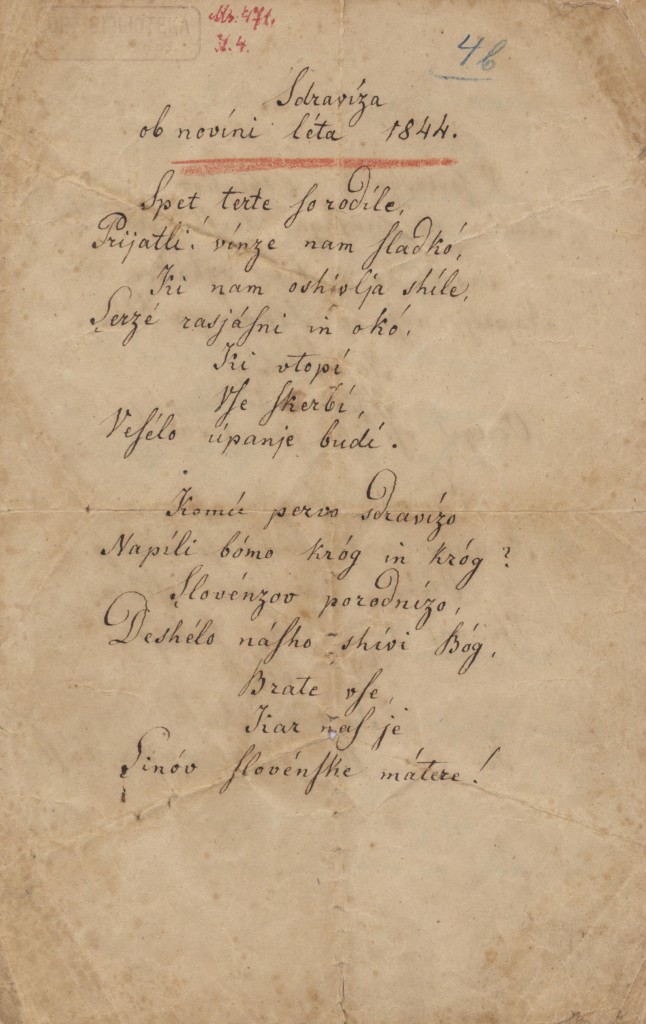 BIBLIOTEKA
Ms. 471.
4b
Sdravíza
ob novíni léta 1844.
Spet terte ſo rodíle,
Prijatli! vínze nam ſladkó,
Ki nam oshívlja shíle,
Serzé rasjáſni in okó,
Ki vtopí
Vſe ſkerbí,
Veſélo úpanje budí.
Komú pervo sdravízo
Napíli bómo króg in króg?
Slovénzov porodnízo,
Deshélo náſho shívi Bóg,
Brate vſe,
Kar naſ je
Sinóv ſlovénſke mátere!